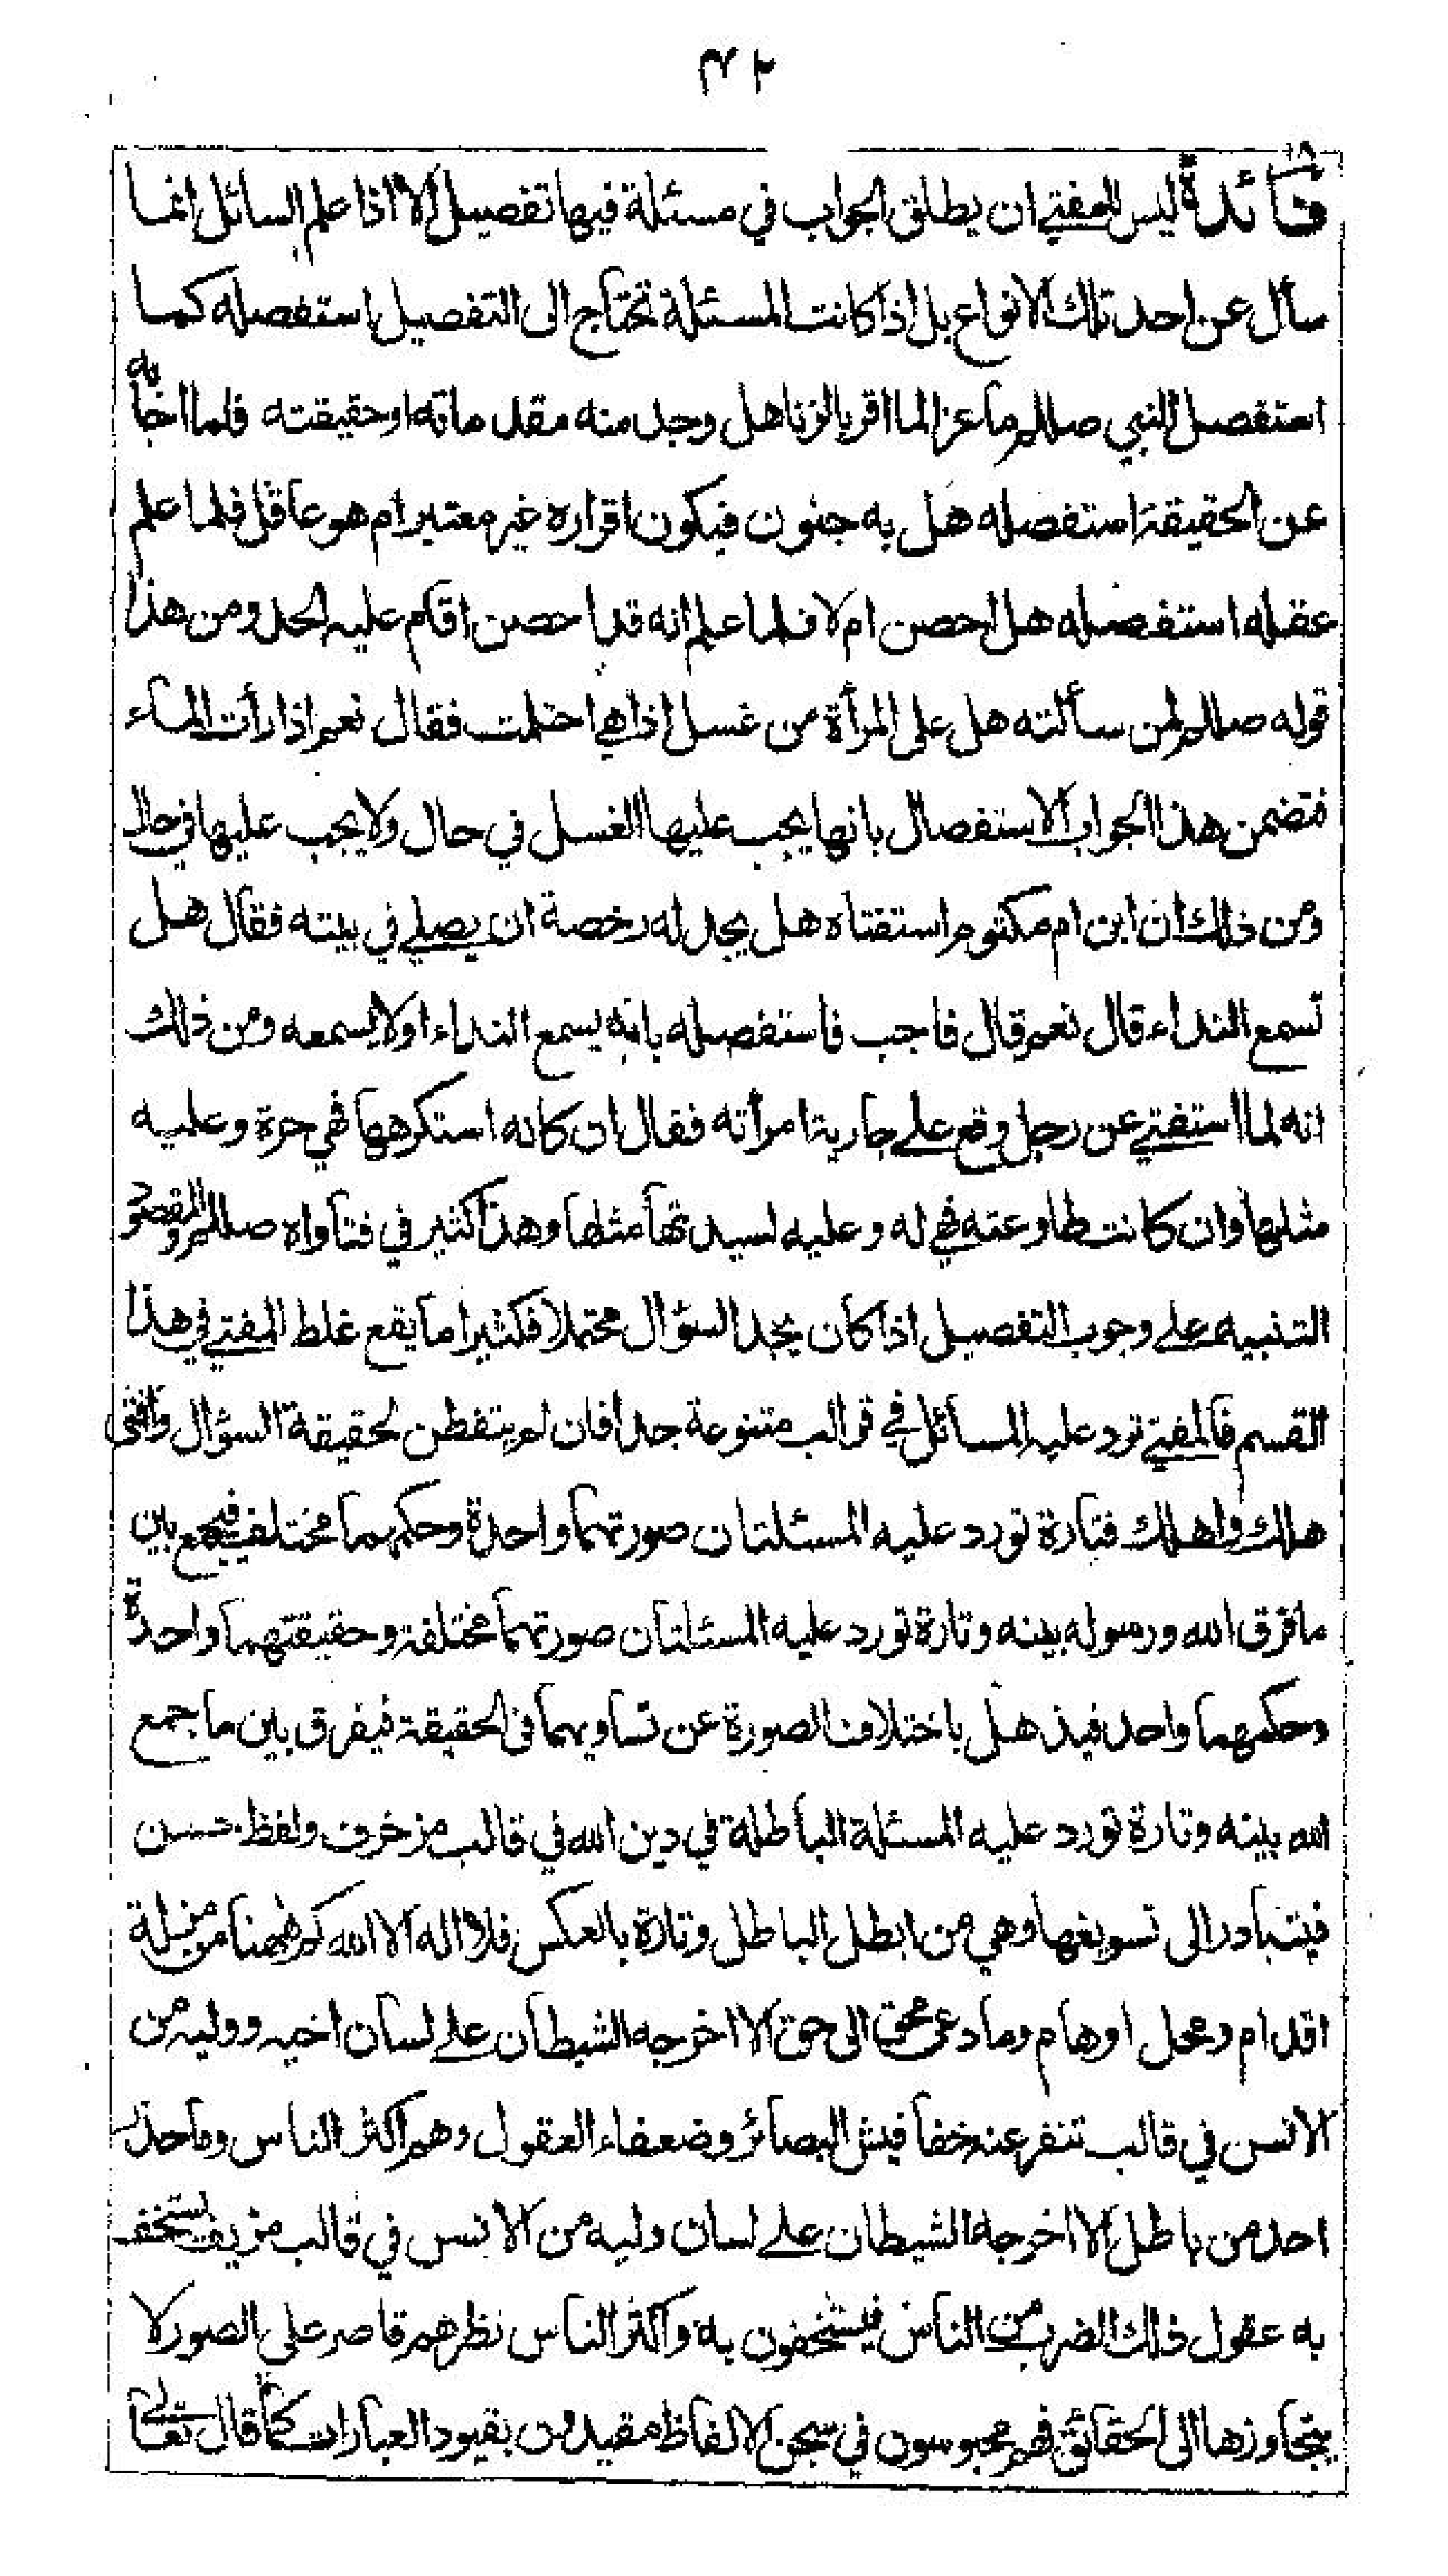 ٤٢
فائدة ليس للمفتي ان يطلق الجواب في مسئلة فيها تفصيل الا اذا علم السائل انما
سأل عن احد تلك الانواع بل اذا كانت المسئلة تحتاج الى التفصيل استفصله كما
استفصل النبي صللم ماعزا لما اقر بالزنا هل وجد منه مقدماته او حقيقته فلما اجابه
عن الحقيقة استفصله هل به جنون فيكون اقراره غير معتبر ام هو عاقل فلما علم
عقله استفصله هل احصن ام لا فلما علم انه قد احصن اقام عليه الحد ومن هذا
قوله صللم لمن سألته هل على المرأة من غسل اذا هي احتلمت فقال نعم اذا رأت الماء
فتضمن هذا الجواب الاستفصال بانها يجب عليها الغسل في حال ولا يجب عليها في حال
ومن ذلك ان ابن ام مكتوم استفتاه هل يجد له رخصة ان يصلي في بيته فقال هل
تسمع النداء قال نعم قال فاجب فاستفصله بانه يسمع النداء او لا يسمعه ومن ذلك
انه لما استفتي عن رجل وقع على جارية امرأته فقال ان كانه استكرهها فهي حرة وعليه
مثلها وان كانت طاوعته فهي له وعليه لسيدتها مثلها وهذا كثير في فتاواه صللم والمقصود
التنبيه على وجوب التفصيل اذا كان يجد السؤال محتملا فكثيرا ما يقع غلط المفتي في هذا
القسم فالمفتي ترد عليه المسائل في قوالب متنوعة جدا فان لم يتفطن لحقيقة السؤال وافتى
هلك واهلك فتارة تورد عليه المسئلتان صورتهما واحدة وحكمهما مختلف فيجمع بين
ما فرق الله ورسوله بينه وتارة تورد عليه المسئلتان صورتهما مختلفة وحقيقتهما واحدة
وحكمهما واحد فيذهل باختلاف الصورة عن تساويهما في الحقيقة فيفرق بين ما جمع
الله بينه وتارة تورد عليه المسئلة الباطلة في دين الله في قالب مزخرف ولفظ حسن
فيتبادر الى تسويغها وهي من ابطل الباطل وتارة بالعكس فلا اله الا الله كم ههنا من مزلة
اقدام ومحل اوهام وما دعى محق الى حق الا اخرجه الشيطان على لسان اخيه ووليه من
الانس في قالب تنفر عنه خفافيش البصائر وضعفاء العقول وهم اكثر الناس وما حذر
احد من باطل الا اخرجه الشيطان على لسان وليه من الانس في قالب مزيف يستخف
به عقول ذلك الضرب من الناس فيستخفون به واكثر الناس نظرهم قاصر على الصور لا
يتجاوزها الى الحقائق فهم محبوسون في سجن الالفاظ مقيدون بقيود العبارات كما قال تعالى